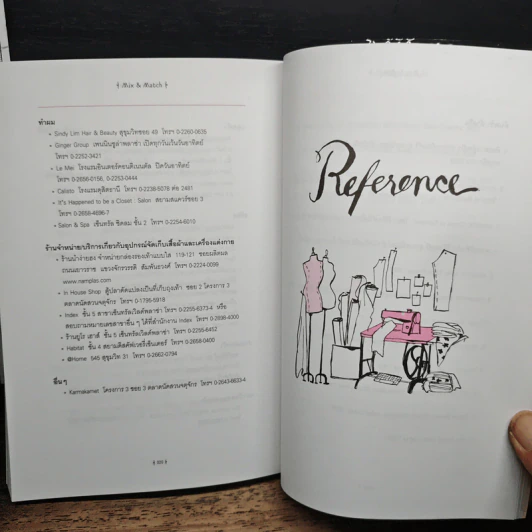 Mix & Match
ทำผม
• Sindy Lim Hair & Beauty สุขุมวิทซอย 49 โทรฯ 0-2260-0639
• Ginger Group เพนนินซูล่าพลาซ่า เปิดทุกวันเว้นวันอาทิตย์
โทรฯ 0-2252-3421
• Le Mei โรงแรมอินเตอร์คอนติเนนตัล ปิดวันอาทิตย์
โทรฯ 0-2656-0156, 0-2253-0444
• Calisto โรงแรมดุสิตธานี โทรฯ 0-2238-5078 ต่อ 2491
• It's Happened to be a Closet : Salon สยามสแควร์ซอย 3
โทรฯ 0-2658-4696-7
• Salon & Spa เซ็นทรัล ชิดลม ชั้น 2 โทรฯ 0-2254-6510
ร้านจำหน่าย/บริการเกี่ยวกับอุปกรณ์จัดเก็บเสื้อผ้าและเครื่องแต่งกาย
• ร้านนำง่ายสง จำหน่ายกล่องรองเท้าแบบใส 119-121 ซอยผลิตผล
ถนนเยาวราช แขวงจักรวรรดิ สัมพันธวงศ์ โทรฯ 0-2224-0099
www.namplas.com
• In House Shop ตู้ปลาดัดแปลงเป็นที่เก็บถุงเท้า ซอย 2 โครงการ 3
ตลาดนัดสวนจตุจักร โทรฯ 0-1796-5918
• Index ชั้น 5 สาขาเซ็นทรัลเวิลด์พลาซ่า โทรฯ 0-2255-6373-4 หรือ
สอบถามหมายเลขสาขาอื่น ๆ ได้ที่สำนักงาน Index โทรฯ 0-2698-4300
• ร้านยูโร เฮาส์ ชั้น 5 เซ็นทรัลเวิลด์พลาซ่า โทรฯ 0-2255-6452
• Habitat ชั้น 4 สยามดิสคัฟเวอรี่เซ็นเตอร์ โทรฯ 0-2658-0400
• @Home 545 สุขุมวิท 31 โทรฯ 0-2662-0794
อื่น ๆ
• Karmakamet โครงการ 3 ซอย 3 ตลาดนัดสวนจตุจักร โทรฯ 0-2643-6633-4
Reference